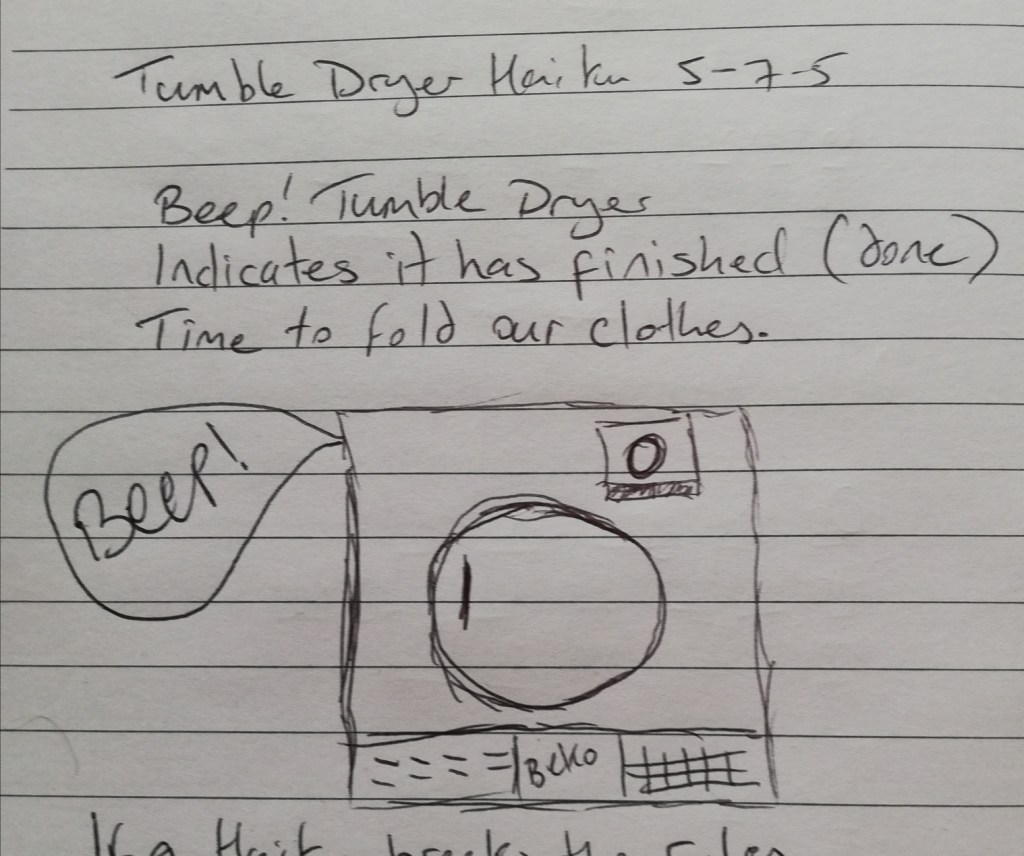 Tumble Dryer Haiku 5-7-5
Beep! Tumble Dryer
Indicates it has finished (done)
Time to fold our clothes.
BEEP!
BEKO
If a Haik